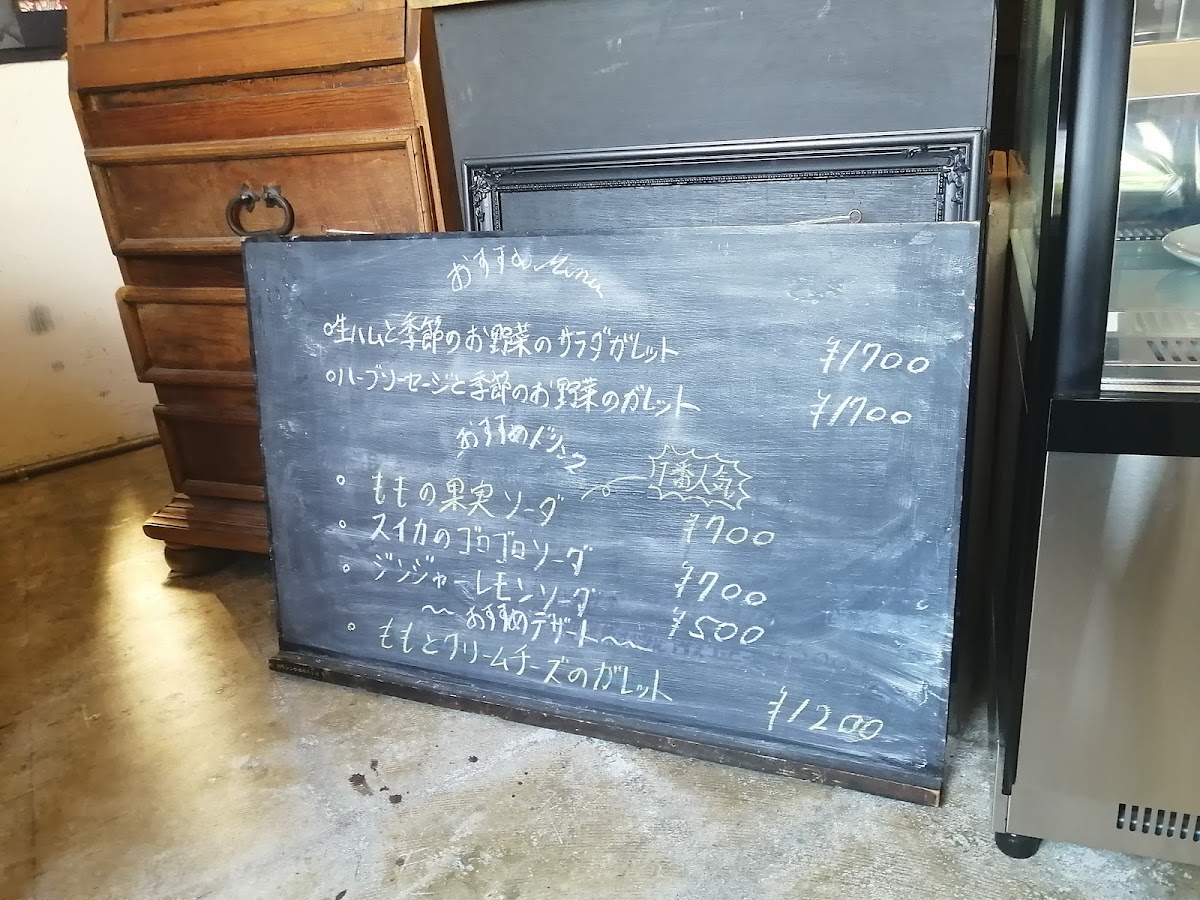 おすすめ Menu
○生ハムと季節のお野菜のサラダガレット ¥1700
○ハーブソーセージと季節のお野菜のガレット ¥1700
おすすめドリンク
1番人気
○ ももの果実ソーダ ¥700
○ スイカのゴロゴロソーダ ¥700
○ ジンジャーレモンソーダ ¥500
～おすすめデザート～
○ ももとクリームチーズのガレット ¥1200